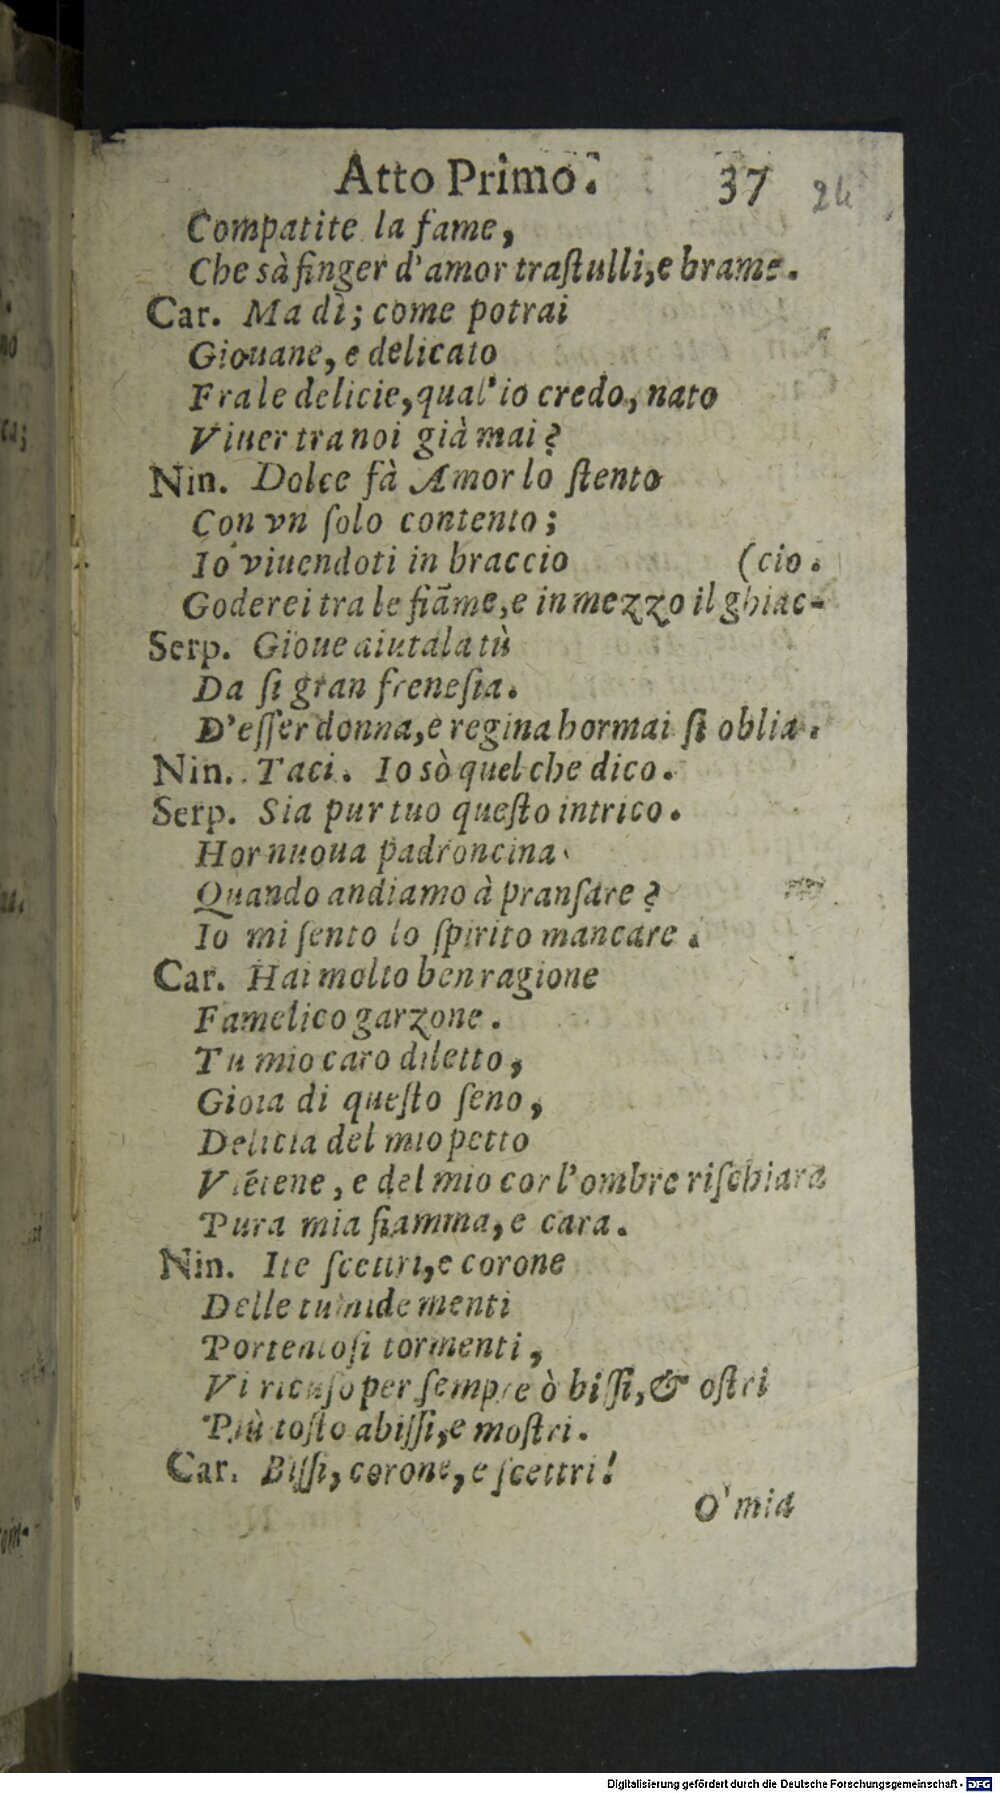 Atto Primo. 37 24
Compatite la fame,
Che sà finger d'amor traſtulli, e brame.
Car. Ma dì; come potrai
Giouane, e delicato
Fra le delicie, qual'io credo, nato
Viuer tra noi già mai?
Nin. Dolce fà Amor lo ſtento
Con vn ſolo contento;
Io viuendoti in braccio (cio.
Goderei tra le fiãme, e in mezzo il ghiac-
Serp. Gioue aiutala tù
Da ſi gran freneſia.
D'eſſer donna, e regina hormai ſi oblia.
Nin. Taci. Io sò quel che dico.
Serp. Sia pur tuo queſto intrico.
Hor nuoua padroncina
Quando andiamo à pranſare?
Io mi ſento lo ſpirito mancare.
Car. Hai molto ben ragione
Famelico garzone.
Tu mio caro diletto,
Gioia di queſto ſeno,
Delitia del mio petto
Viẽtene, e del mio cor l'ombre riſchiara
Pura mia fiamma, e cara.
Nin. Ite ſcettri, e corone
Delle tumide menti
Portentoſi tormenti,
Vi ricuſo per ſempre ò biſſi, & oſtri
Più toſto abiſſi, e moſtri.
Car. Biſſi, corone, e ſcettri!
O' mia
Digitalisierung gefördert durch die Deutsche Forschungsgemeinschaft - DFG